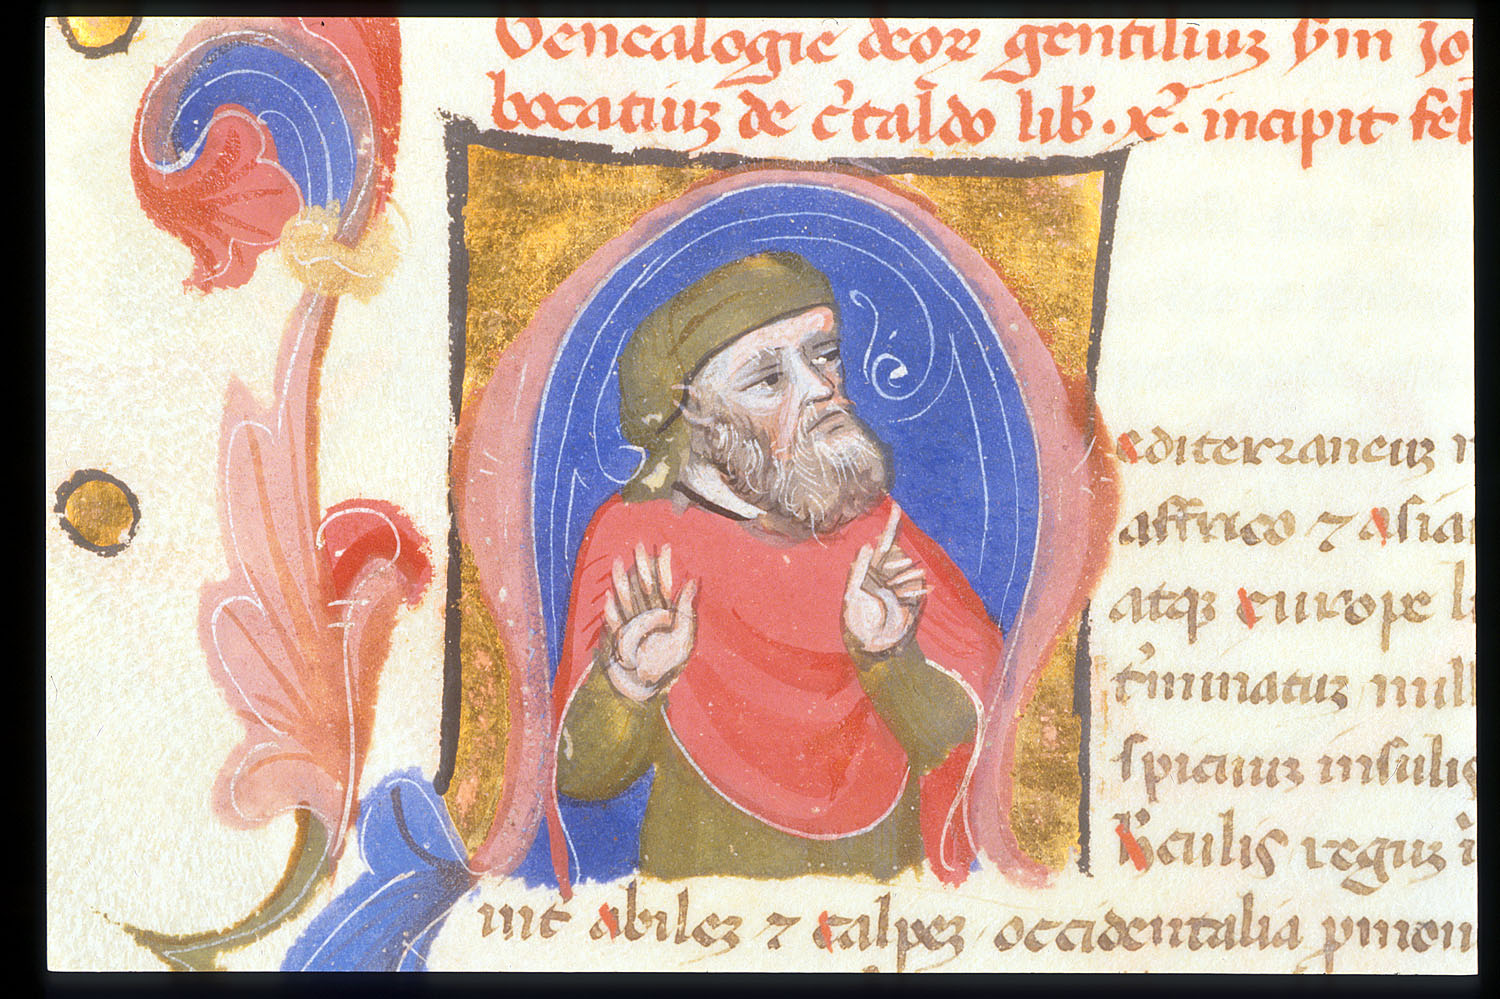 Genealogie deoꝝ gentiliuꝫ ẜm Jo
bocatiuꝫ de c̉taldo lib̉ .xͦ. incipit fel
editerraneuꝫ
affrico ⁊ asia
atqꝫ europe
t̉minatuꝫ
spicuuꝫ insulis
h̉culis reguꝫ
nit abileꝫ ⁊ calpeꝫ occidentalia